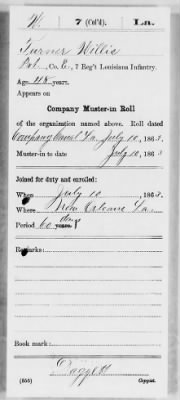 W 7 (Col'd). La.
Turner Willis
Pvt., Co. E., 7 Reg't Louisiana Infantry.
Age 48 years.
Appears on
Company Muster-in Roll
of the organization named above. Roll dated
Company Canal La July 10, 1863.
Muster-in to date July 10, 1863
Joined for duty and enrolled:
When July 10, 1863.
Where New Orleans La.
Period 60 days years.
Remarks:
Book mark:
(355) Copyist.